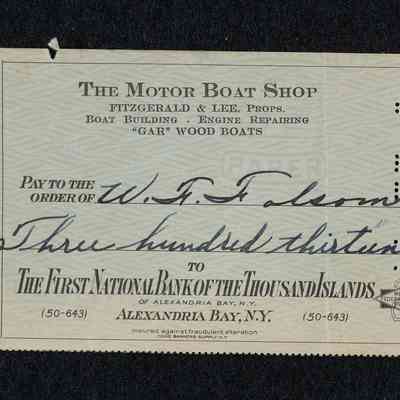 THE MOTOR BOAT SHOP
FITZGERALD & LEE, PROPS.
BOAT BUILDING - ENGINE REPAIRING
"GAR" WOOD BOATS
PAY TO THE
ORDER OF W. F. Folsom
Three hundred thirteen
TO
THE FIRST NATIONAL BANK OF THE THOUSAND ISLANDS
OF ALEXANDRIA BAY, N.Y.
(50-643) ALEXANDRIA BAY, N.Y. (50-643)
insured against fraudulent alteration